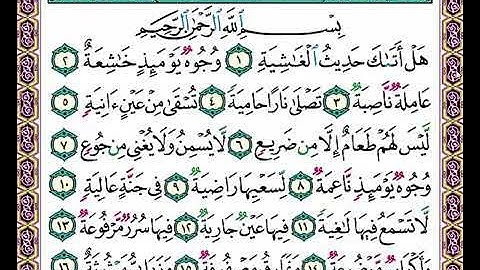 بِسْمِ ٱللَّهِ ٱلرَّحْمَٰنِ ٱلرَّحِيمِ
هَلْ أَتَىٰكَ حَدِيثُ ٱلْغَٰشِيَةِ ١ وُجُوهٌ يَوْمَئِذٍ خَٰشِعَةٌ ٢
عَامِلَةٌ نَّاصِبَةٌ ٣ تَصْلَىٰ نَارًا حَامِيَةً ٤ تُسْقَىٰ مِنْ عَيْنٍ ءَانِيَةٍ ٥
لَّيْسَ لَهُمْ طَعَامٌ إِلَّا مِن ضَرِيعٍ ٦ لَّا يُسْمِنُ وَلَا يُغْنِى مِن جُوعٍ ٧
وُجُوهٌ يَوْمَئِذٍ نَّاعِمَةٌ ٨ لِّسَعْيِهَا رَاضِيَةٌ ٩ فِى جَنَّةٍ عَالِيَةٍ ١٠
لَّا تَسْمَعُ فِيهَا لَٰغِيَةً ١١ فِيهَا عَيْنٌ جَارِيَةٌ ١٢ فِيهَا سُرُرٌ مَّرْفُوعَةٌ ١٣
وَأَكْوَابٌ مَّوْضُوعَةٌ ١٤ وَنَمَارِقُ مَصْفُوفَةٌ ١٥ وَزَرَابِىُّ مَبْثُوثَةٌ ١٦